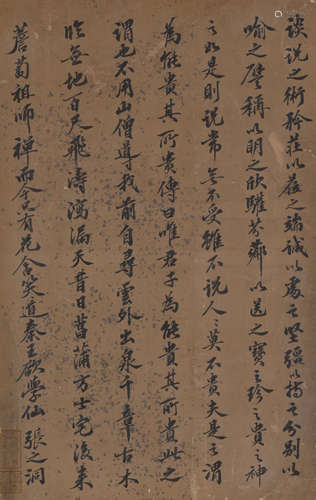 談說之術矜莊以莅之端誠以處之堅彊以持之分別以
喻之譬稱以明之欣驩芬薌以送之寶之珍之貴之神
之如是則說常無不受雖不說人人莫不貴夫是之謂
為能貴其所貴傳曰唯君子為能貴其所貴此之
謂也不用山僧導我前自尋雲外出泉千章古木
臨無地百尺飛濤瀉漏天昔日菖蒲方士宅後來
薝蔔祖師禪而今只有花含笑笑道秦王欲學仙 張之洞